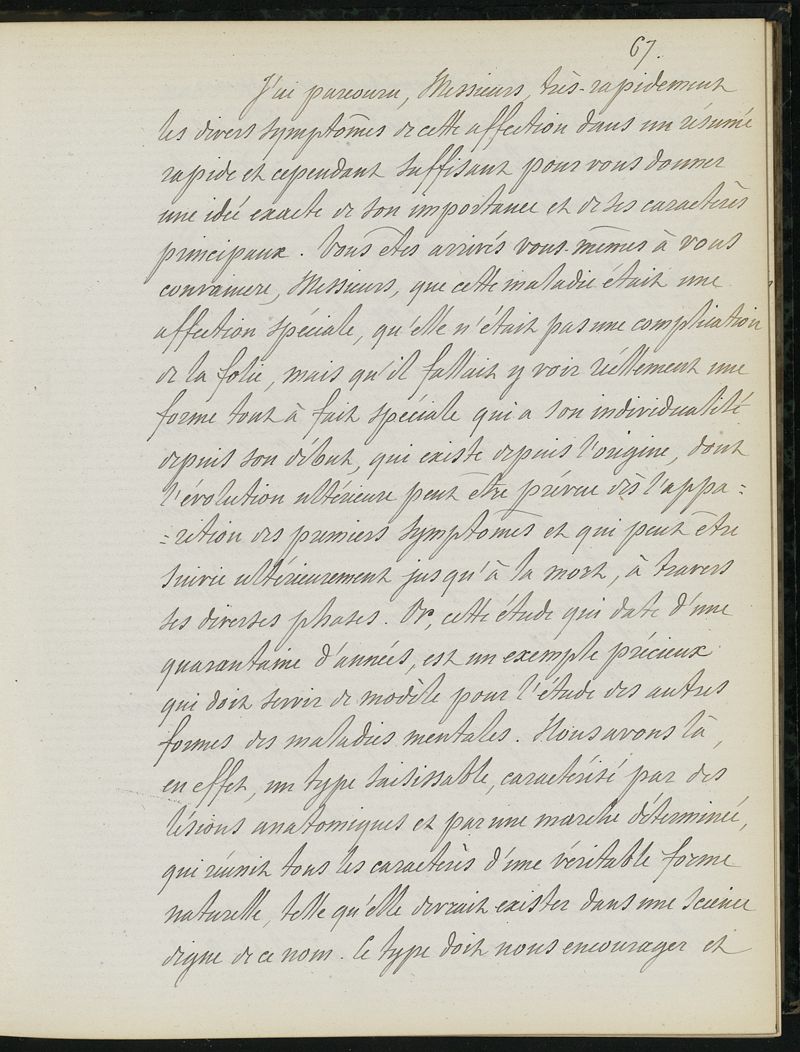 67.
J'ai parcouru, Messieurs, très-rapidement
les divers symptômes de cette affection dans un résumé
rapide et cependant suffisant pour vous donner
une idée exacte de son importance et de ses caractères
principaux. Vous êtes arrivés vous-mêmes à vous
convaincre, Messieurs, que cette maladie était une
affection spéciale, qu'elle n'était pas une complication
de la folie, mais qu'il fallait y voir réellement une
forme tout à fait spéciale qui a son individualité
depuis son début, qui existe depuis l'origine, dont
l'évolution ultérieure peut être prévue dès l'appa=
=rition des premiers symptômes et qui peut être
suivie ultérieurement jusqu'à la mort, à travers
ses diverses phases. Or, cette étude qui date d'une
quarantaine d'années, est un exemple précieux
qui doit servir de modèle pour l'étude des autres
formes des maladies mentales. Nous avons là,
en effet, un type saisissable, caractérisé par des
lésions anatomiques et par une marche déterminée,
qui réunit tous les caractères d'une véritable forme
naturelle, telle qu'elle devrait exister dans une science
digne de ce nom. Ce type doit nous encourager et